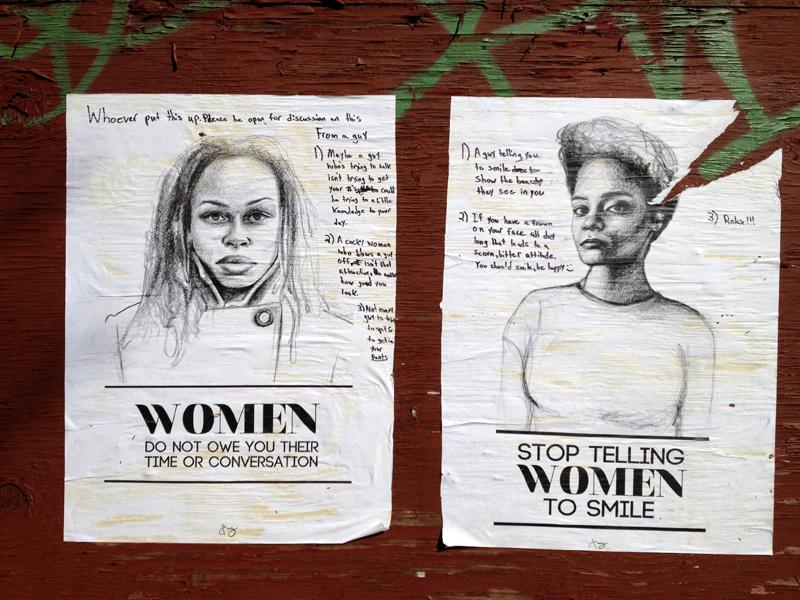 Whoever put this up. Please be open for discussion on this
From a guy
1) Maybe a guy
who's trying to talk
isn't trying to get
your could
be trying to a little
knowledge to your
day.
2) A cocky woman
who blows a guy
off isn't that
attractive, no matter
how good you
look.
3) Not every
guy is
to spit
to get in
your
pants
WOMEN
DO NOT OWE YOU THEIR
TIME OR CONVERSATION
1) A guy telling you
to smile
show the beauty
they see in you
2) If you have a frown
on your face all day
long that leads to a
scorn, bitter attitude.
You should smile, be happy :)
3) Relax!!!
STOP TELLING
WOMEN
TO SMILE